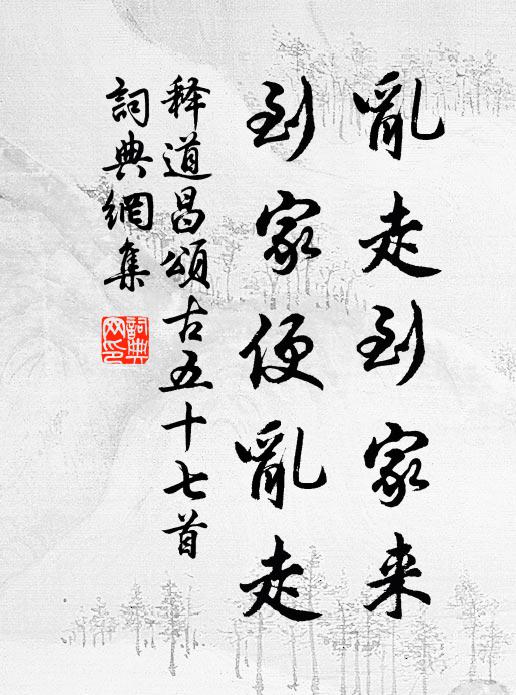 亂走到家来
到家便亂走
释道昌頌古五十七首
詞典網集
詞典
网印